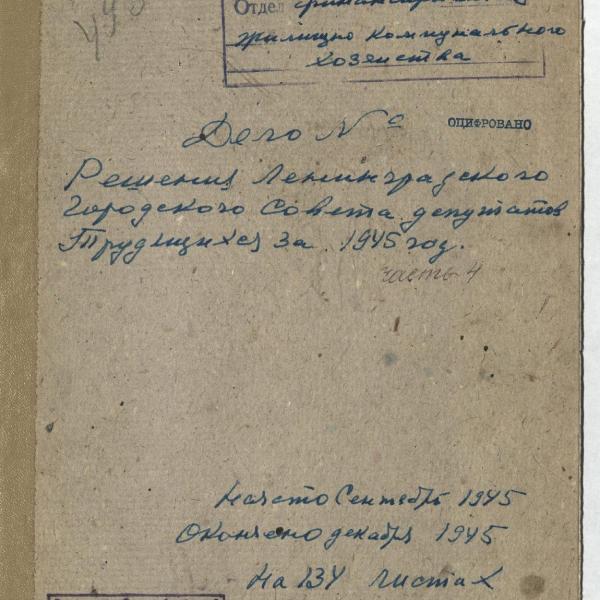 Отдел финансирования
жилищно коммунального
хозяйства
Дело №
ОЦИФРОВАНО
Решения Ленинградского
Городского Совета депутатов
Трудящихся за 1945 год.
часть 4
Начато Сентябрь 1945
Окончено декабря 1945
На 134 листах